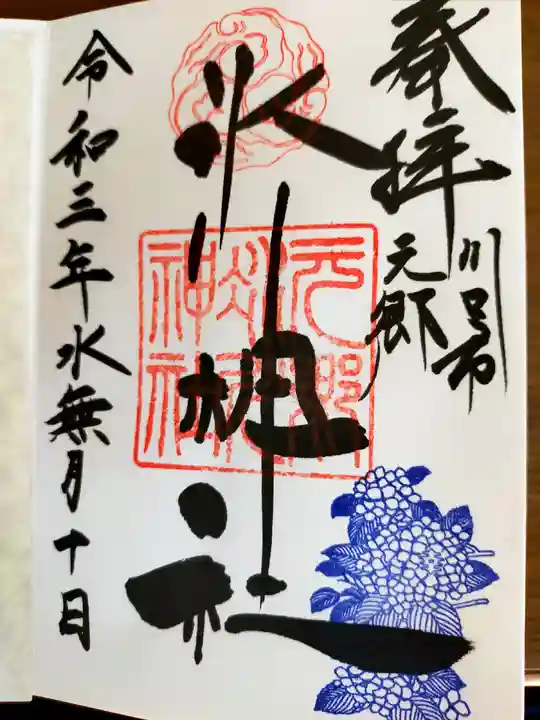 奉拝
川口市
元郷
氷川神社
元郷
氷川
神社
令和三年水無月十日